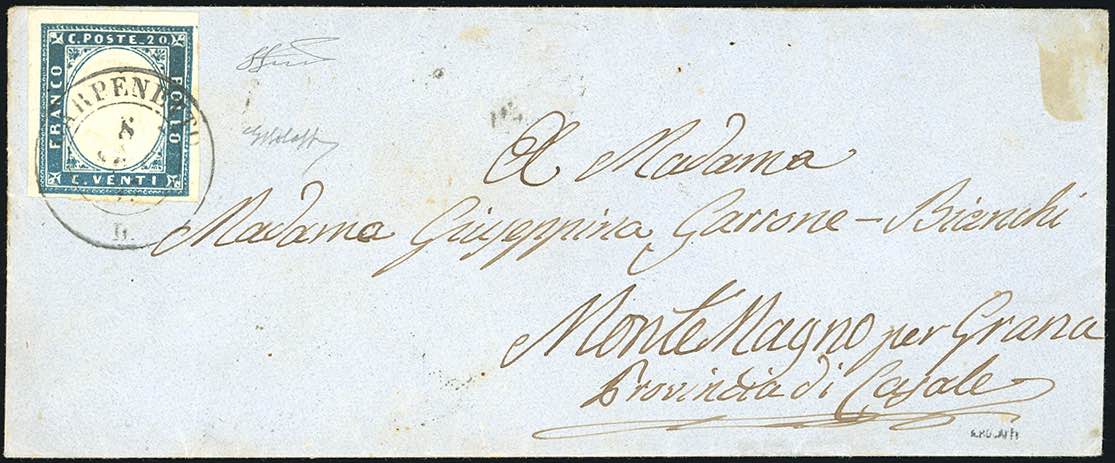 C. POSTE. 20
FRANCO
BOLLO
C. VENTI
8
D.
A Madama
Madama Giuseppina Garrone - Bianchi
MonteMagno per Grana
Provincia di Casale